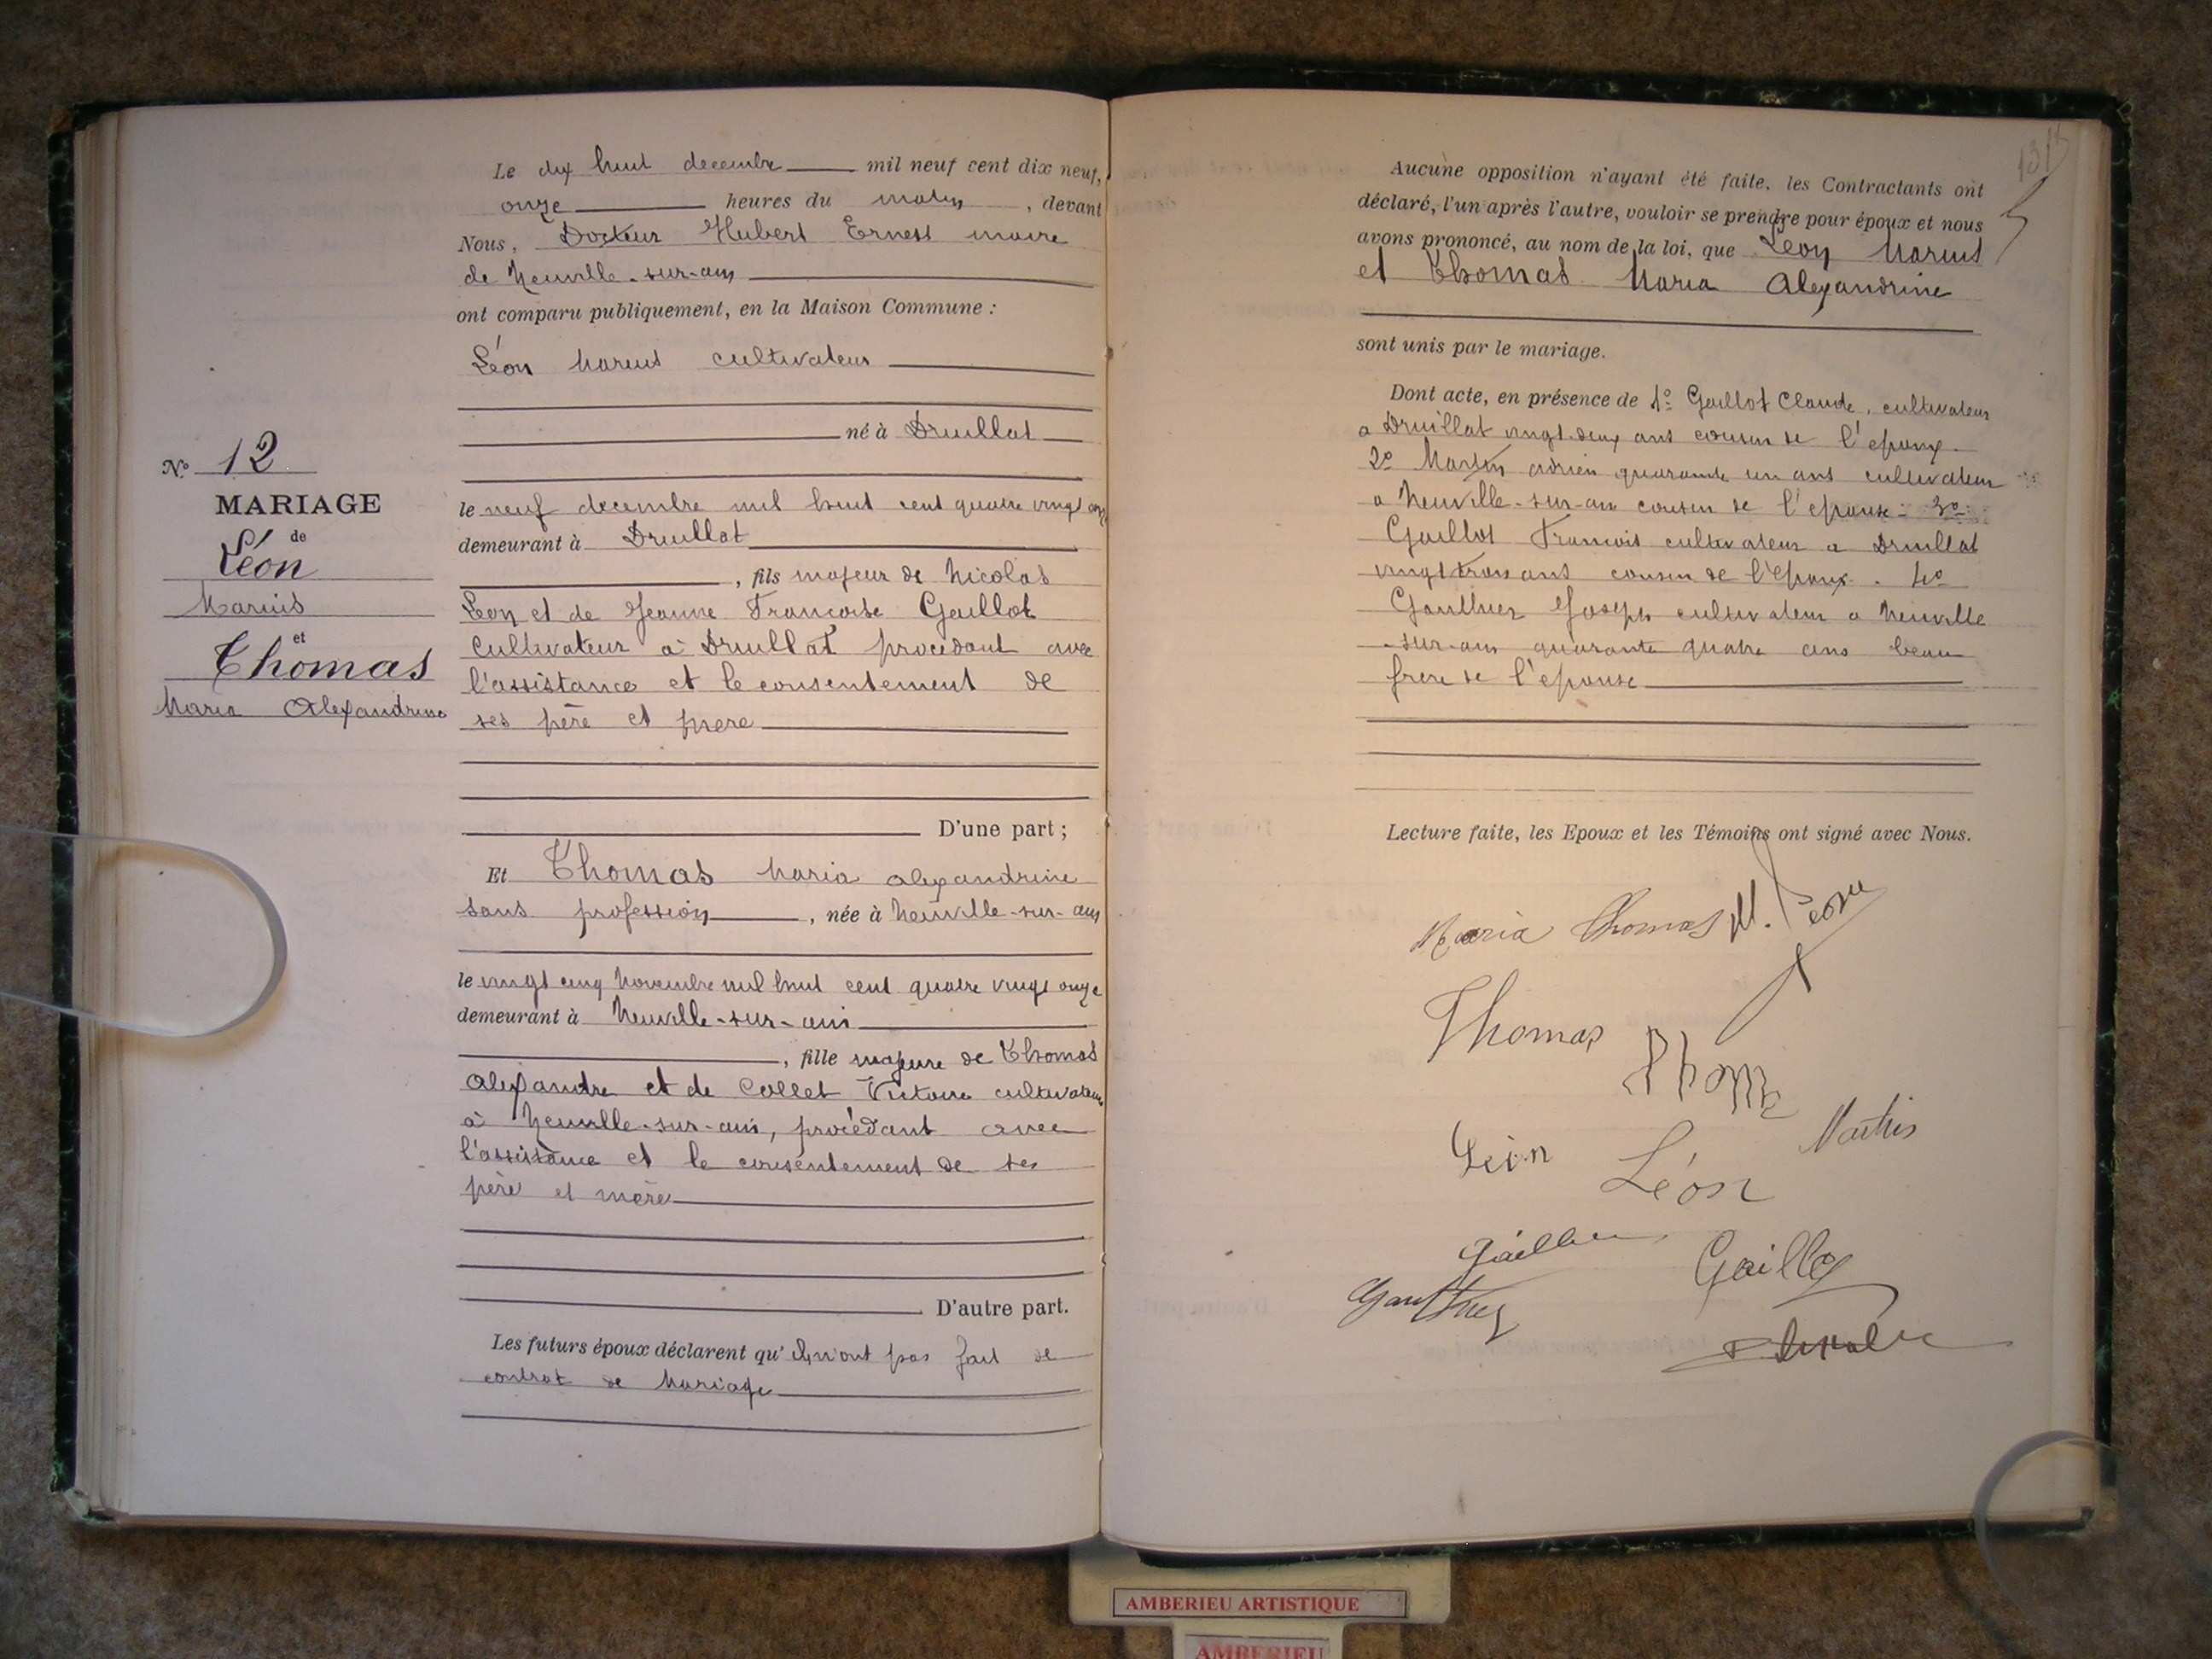 Le dix huit decembre mil neuf cent dix neuf,
onze heures du matin, devant
Nous, Docteur Hubert Ernest maire
de Neuville-sur-ain
ont comparu publiquement, en la Maison Commune :
Léon Marius cultivateur
né à Druillat
le neuf decembre mil huit cent quatre vingt onze
demeurant à Druillat
, fils majeur de Nicolas
Leon et de Jeanne Francoise Gaillot
Cultivateur à Druillat procedant avec
l'assistance et le consentement de
ses père et mere
D'une part ;
Et Thomas Maria alexandrine
sans profession, née à Neuville-sur-ain
le vingt cinq Novembre mil huit cent quatre vingt onze
demeurant à Neuville-sur-ain
, fille majeure de Thomas
alexandre et de Collet Victoire cultivateurs
à Neuville-sur-ain, procédant avec
l'assistance et le consentement de ses
père et mère
D'autre part.
Les futurs époux déclarent qu'ils n'ont pas fait de
contrat de Mariage
No 12
MARIAGE
de
Léon
Marius
et
Thomas
Maria Alexandrine
Aucune opposition n'ayant été faite, les Contractants ont
déclaré, l'un après l'autre, vouloir se prendre pour époux et nous
avons prononcé, au nom de la loi, que Leon Marius
et Thomas Maria Alexandrine
sont unis par le mariage.
Dont acte, en présence de 1º Gaillot Claude, cultivateur
a Druillat vingt deux ans cousin de l'epoux.
2º Martin adrien quarante un ans cultivateur
a Neuville-sur-ain cousin de l'epouse 3º
Gaillot Francois cultivateur a Druillat
vingt trois ans cousin de l'epoux. 4º
Gauthier Joseph cultivateur a Neuville
-sur-ain quarante quatre ans beau
frere de l'épouse
Lecture faite, les Epoux et les Témoins ont signé avec Nous.
Maria Thomas M. Léon
Thomas
Thomas
Léon
Léon
Martin
Gaillot
Gauthier
AMBERIEU ARTISTIQUE
AMBERIEU